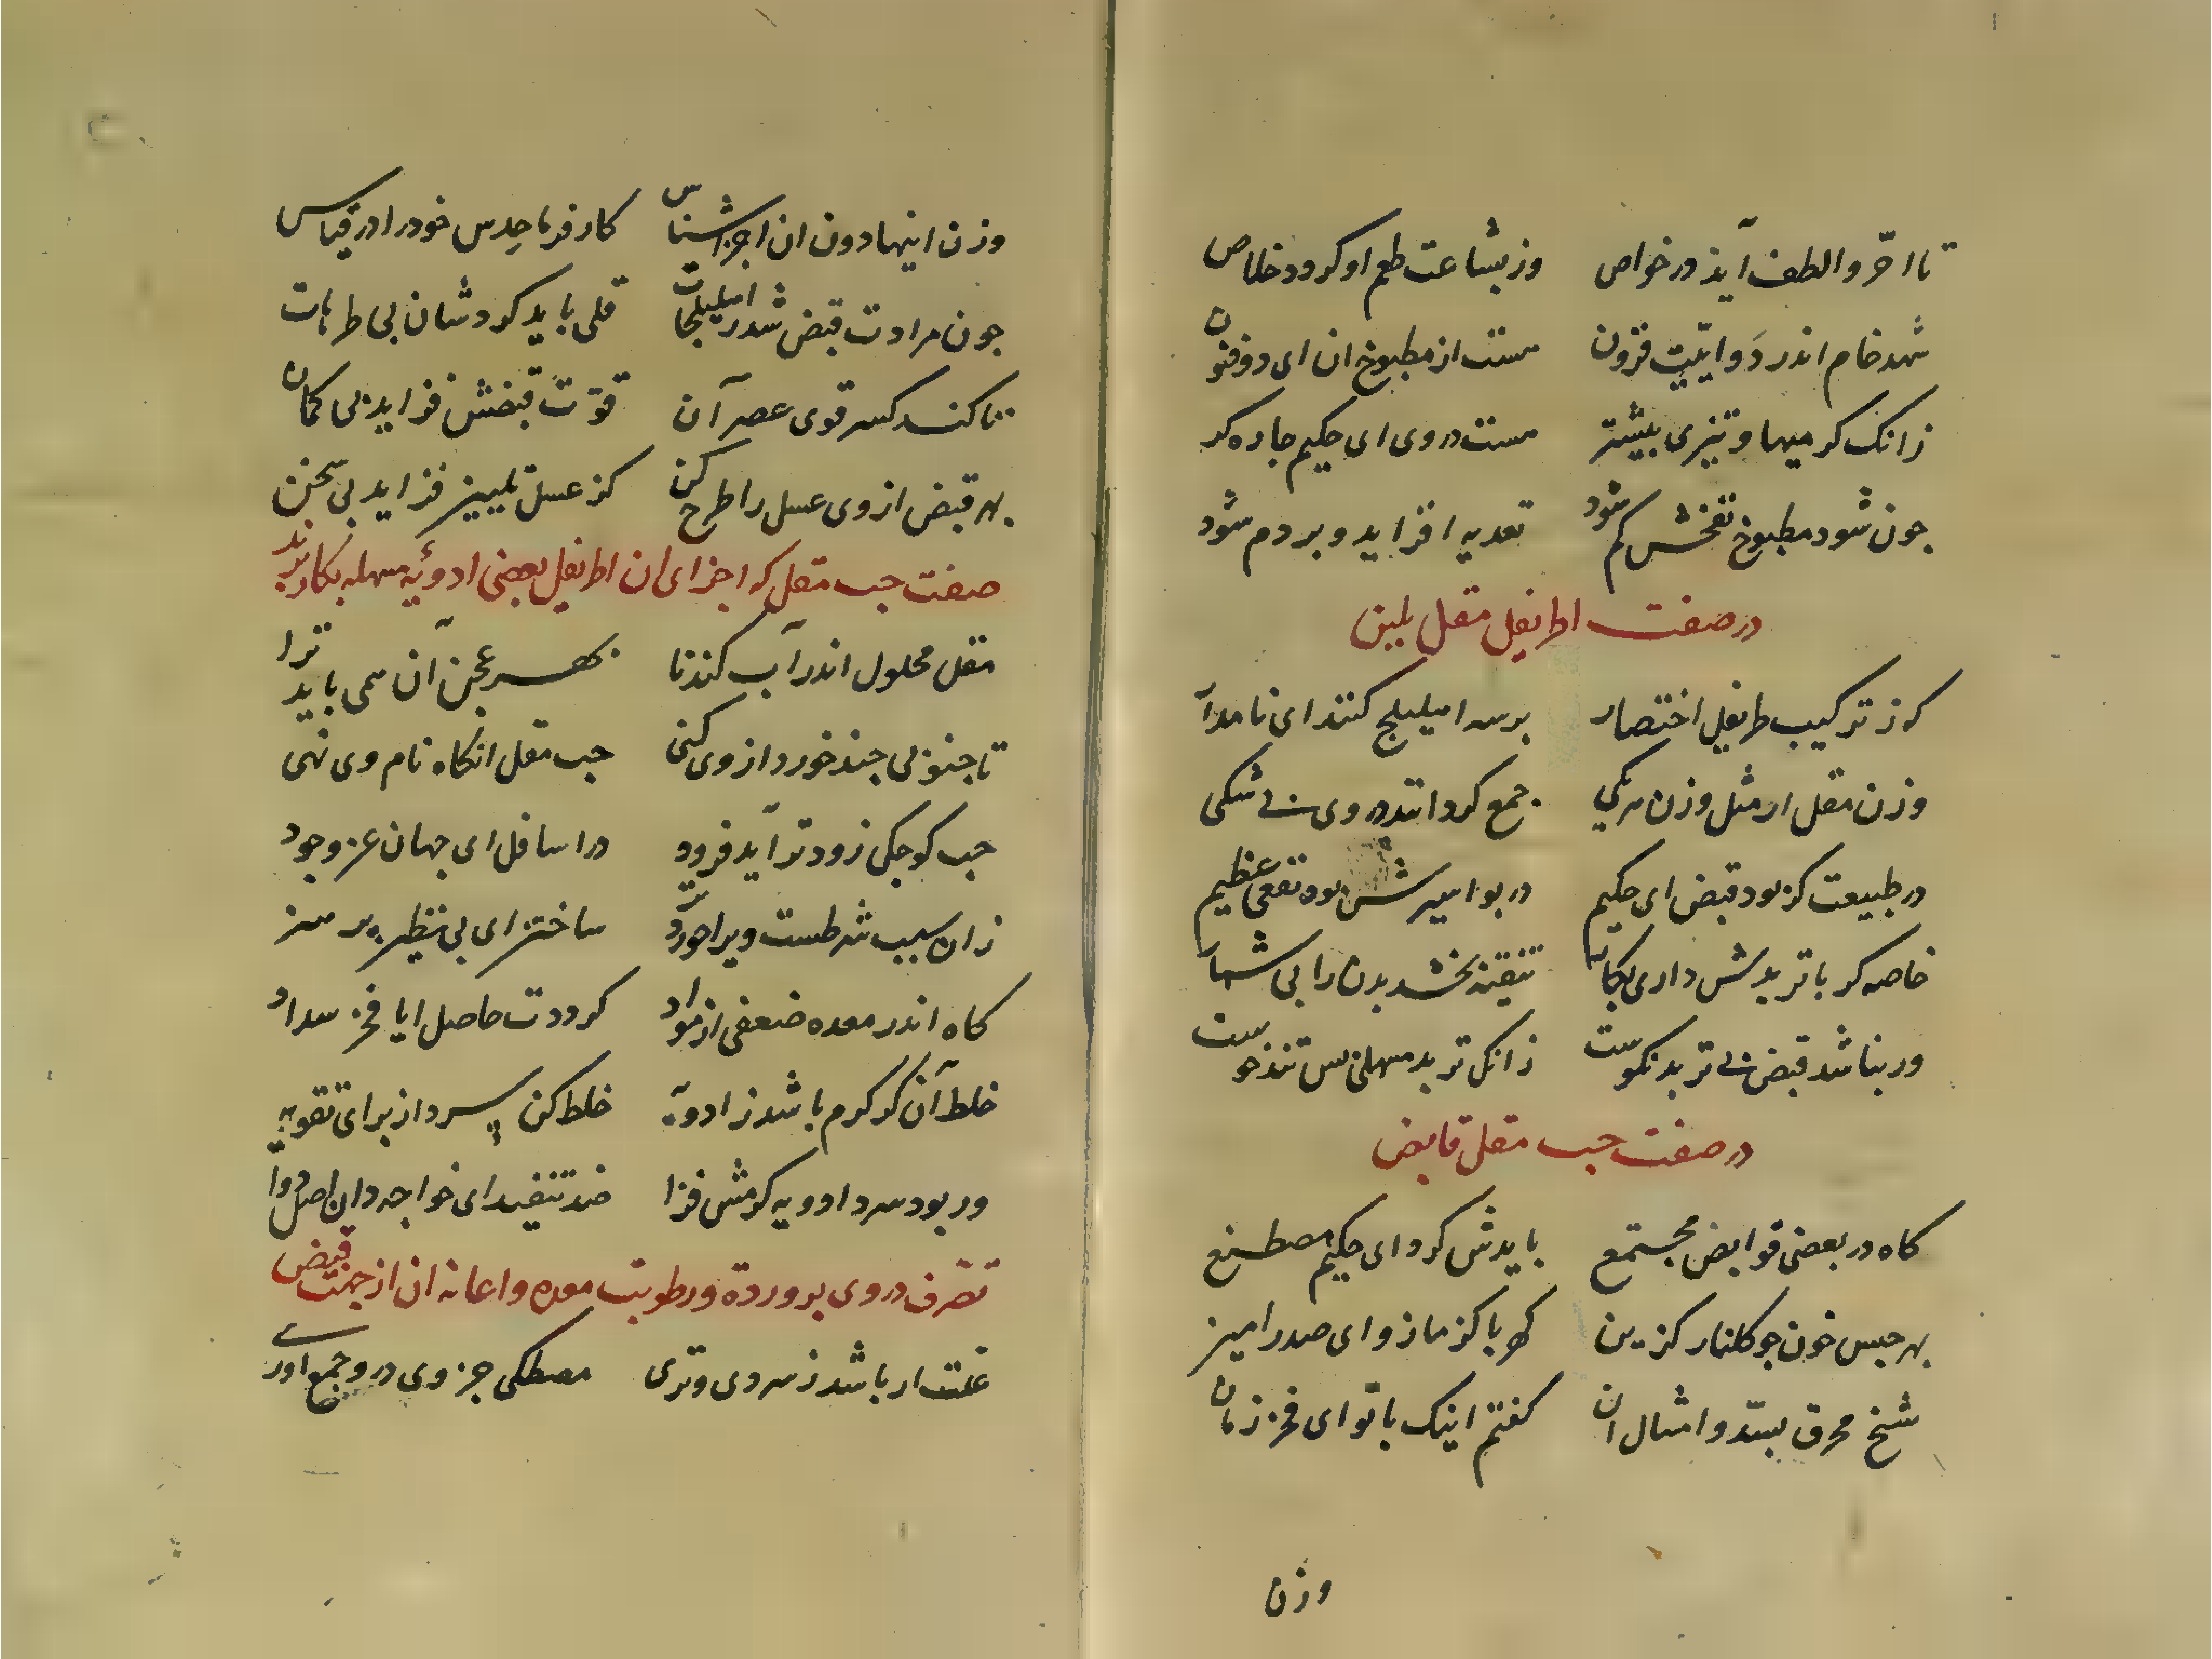 تا احرّ و الطف آید در خواص وز بشاعت طعم او کردد خلاص
شهد خام اندر دَواییّت فزون هست از مطبوخ ان ای ذوفنون
زانک کرمیها و تیزی بیشتر هست در وی ای حکیم جاره کر
جون شود مطبوخ نفخش کم شود تعدیه افزاید و بردم شود
در صفت اطریفل مقل ملین
که ز ترکیب طریفل اختصار بر سه املیلج کنند ای نامدار
وزن مقل ار مثل وزن هر یکی جمع کردانند در وی بی شکی
در طبیعت کر بود قبض ای حکیم در بواسیرش بود نفعی عظیم
خاصه کر با تربدش داری بکار تنقیه بخشد بدن را بی شمار
ور نباشد قبض بی تربد نکوست زانک تربد مسهلی بس تندخوست
در صفت حب مقل قابض
کاه در بعضی قوابض مجتمع بایدش کرد ای حکیم مصطنع
بهر حبس خون جو کلنار کزین کهربا کزمازو ای صدر امیز
شخ محرق بسّد و امثال ان کفتم اینک با تو ای فخر زمان
وزن
وزن اینها دون ان اجزا شناس کار فرما حدس خود را در قیاس
جون مرادت قبض شد ز املیلجات قلی باید کردشان بی طرهات
تا کند کسر قوی عصر آن قوّت قبضش فزاید بی کمان
بهر قبض از وی عسل را طرح کن کز عسل تلیین فزاید بی سخن
صفت حب مقل که اجزای ان اطریفل بعضی ادوئیه مسهله بکار برند
مقل محلول اندر آب کندنا بهر عجن آن همی باید ترا
تا جنوبی جند خورد از وی کنی حب مقل انکاه نام وی نهی
حب کوجکی زودتر آید فرود در اسافل ای جهان عز و جود
زان سبب شرطست ویرا خوردتر ساختن ای بی نظیر پر هنر
کاه اندر معده ضعفی از مواد کرددت حاصل ایا فخر سداد
خلط آن کر کرم باشد ز ادویه خلط کن سرد از برای تقویه
ور بود سرد ادویه کرمش فزا ضد تنفید ای خواجه دان اصل دوا
تصرف در وی برودة و رطوبت معده و اعانه ان از جهت قبض
علت ار باشد ز سردی و تری مصطکی جزوی در و جمع اوری